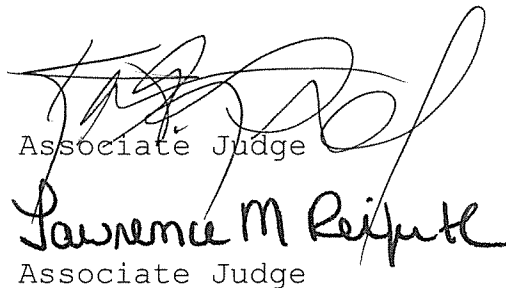 Associate Judge
Lawrence M Reifurth
Associate Judge